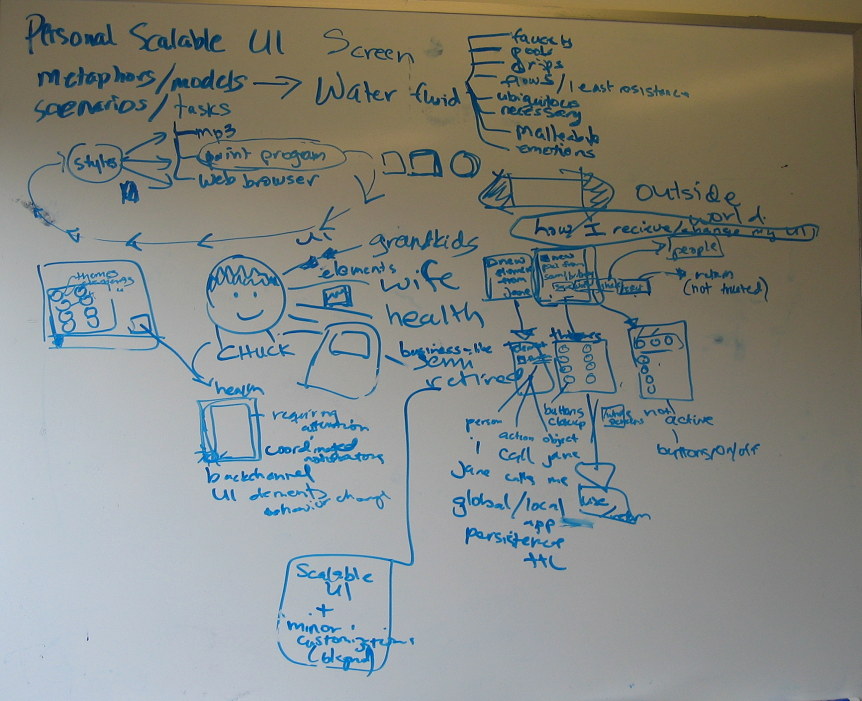 Personal Scalable UI Screen
metaphors/models → Water fluid
scenarios/tasks
faucets
pools
drips
flows/least resistance
ubiquitous
necessary
malleable
emotions
styles
mp3
paint program
web browser
outside
world.
how I recieve/change my UI
UI
elements
grandkids
wife
health
business-like
semi
retired
CHUCK
theme
elements
health
requiring
attention
coordinated
notifications
backchannel
UI elements
behavior change
new
element
from
Jane
new
people
(not trusted)
themes
person
buttons
closeup
action object
I call jane
jane calls me
global/local
app
persistence
ttl
use
not
active
buttons/on/off
Scalable
UI
+
minor
customizations
(bkgnd)